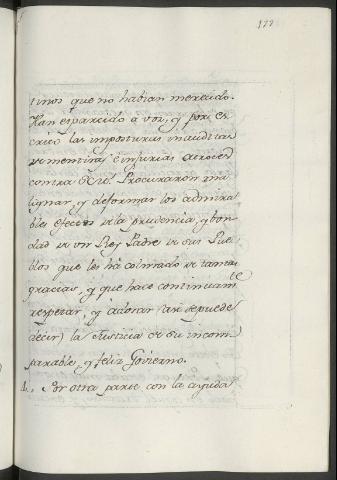 177
tinos que no habian merecido.
Han esparcido a voz, y por es
crito las imposturas inauditas
de mentiras é injurias atroces
contra Procuraron ma
lignar, y deformar los admira
bles efectos de la prudencia, y bon
dad de un Rey Padre de sus Pue
blos que les ha colmado de tantas
gracias, y que hace continuamte
respetar, y adorar (asi se puede
decir) la Justicia de su incom
parable, y feliz Govierno.
Por otra parte con la ayuda